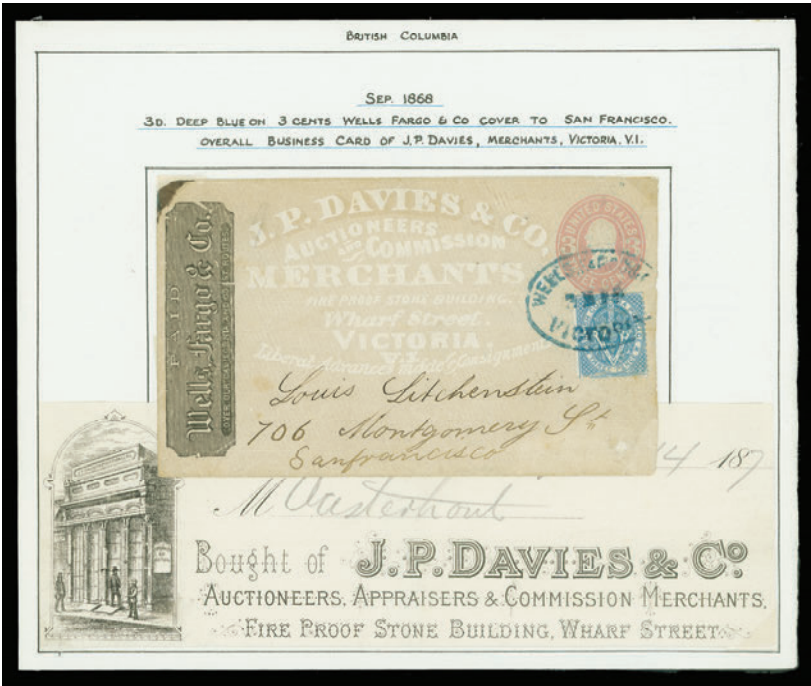 BRITISH COLUMBIA
SEP. 1868
3D. DEEP BLUE ON 3 CENTS WELLS FARGO & CO COVER TO SAN FRANCISCO.
OVERALL BUSINESS CARD OF J.P. DAVIES, MERCHANTS, VICTORIA. V.I.
PAID
Wells, Fargo & Co.
J. P. DAVIES & CO.
AUCTIONEERS
AND COMMISSION
MERCHANTS
FIRE PROOF STONE BUILDING.
Wharf Street.
VICTORIA.
V.I.
Liberal Advances made on Consignments
UNITED STATES
WELLS FARGO
VICTORIA
Louis Litchenstein
706 Montgomery St
Sanfrancisco
14 187
M Oasterhout
Bought of J. P. DAVIES & Co
AUCTIONEERS, APPRAISERS & COMMISSION MERCHANTS,
FIRE PROOF STONE BUILDING, WHARF STREET